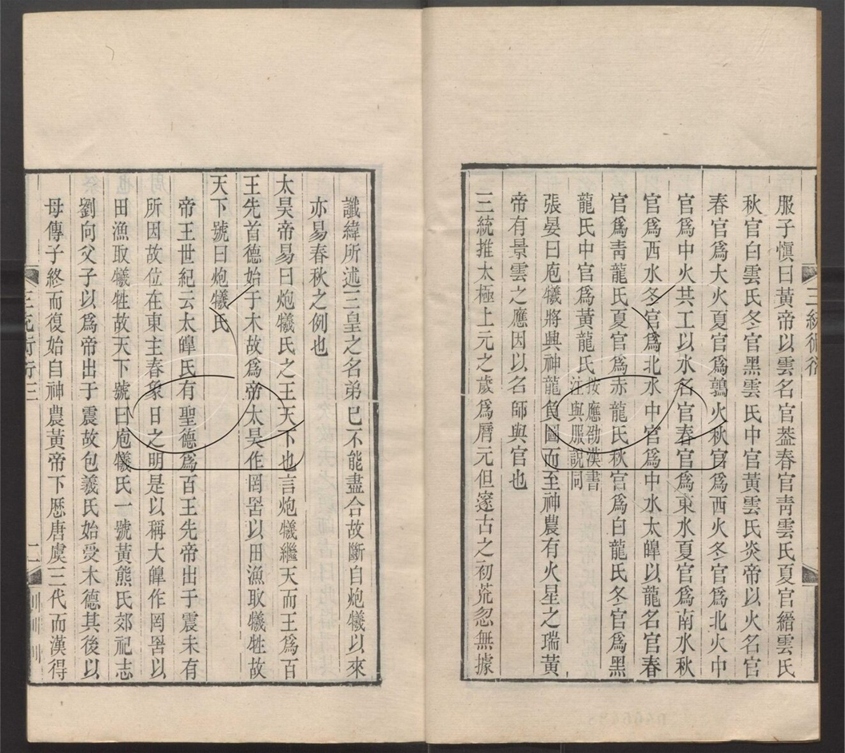 服子愼曰黃帝以雲名官葢春官靑雲氏夏官縉雲氏
秋官白雲氏冬官黑雲氏中官黃雲氏炎帝以火名官
春官爲大火夏官爲鶉火秋官爲西火冬官爲北火中
官爲中火共工以水名官春官爲東水夏官爲南水秋
官爲西水冬官爲北水中官爲中水太皥以龍名官春
官爲靑龍氏夏官爲赤龍氏秋官爲白龍氏冬官爲黑
龍氏中官爲黃龍氏按應劭漢書注與服說同
張晏曰庖犧將興神龍負圖而至神農有火星之瑞黃
帝有景雲之應因以名師與官也
三統推太極上元之歲爲曆元但邃古之初荒忽無據
三統術衍
讖緯所述三皇之名弟已不能盡合故斷自炮犧以來
亦易春秋之例也
太昊帝易曰炮犧氏之王天下也言炮犧繼天而王爲百
王先首德始于木故爲帝太昊作罔罟以田漁取犧牲故
天下號曰炮犧氏
帝王世紀云太皥氏有聖德爲百王先帝出于震未有
所因故位在東主春象日之明是以稱大皥作罔罟以
田漁取犧牲故天下號曰庖犧氏一號黃熊氏郊祀志
劉向父子以爲帝出于震故包羲氏始受木德其後以
母傳子終而復始自神農黃帝下歷唐虞三代而漢得
三統術衍三
二